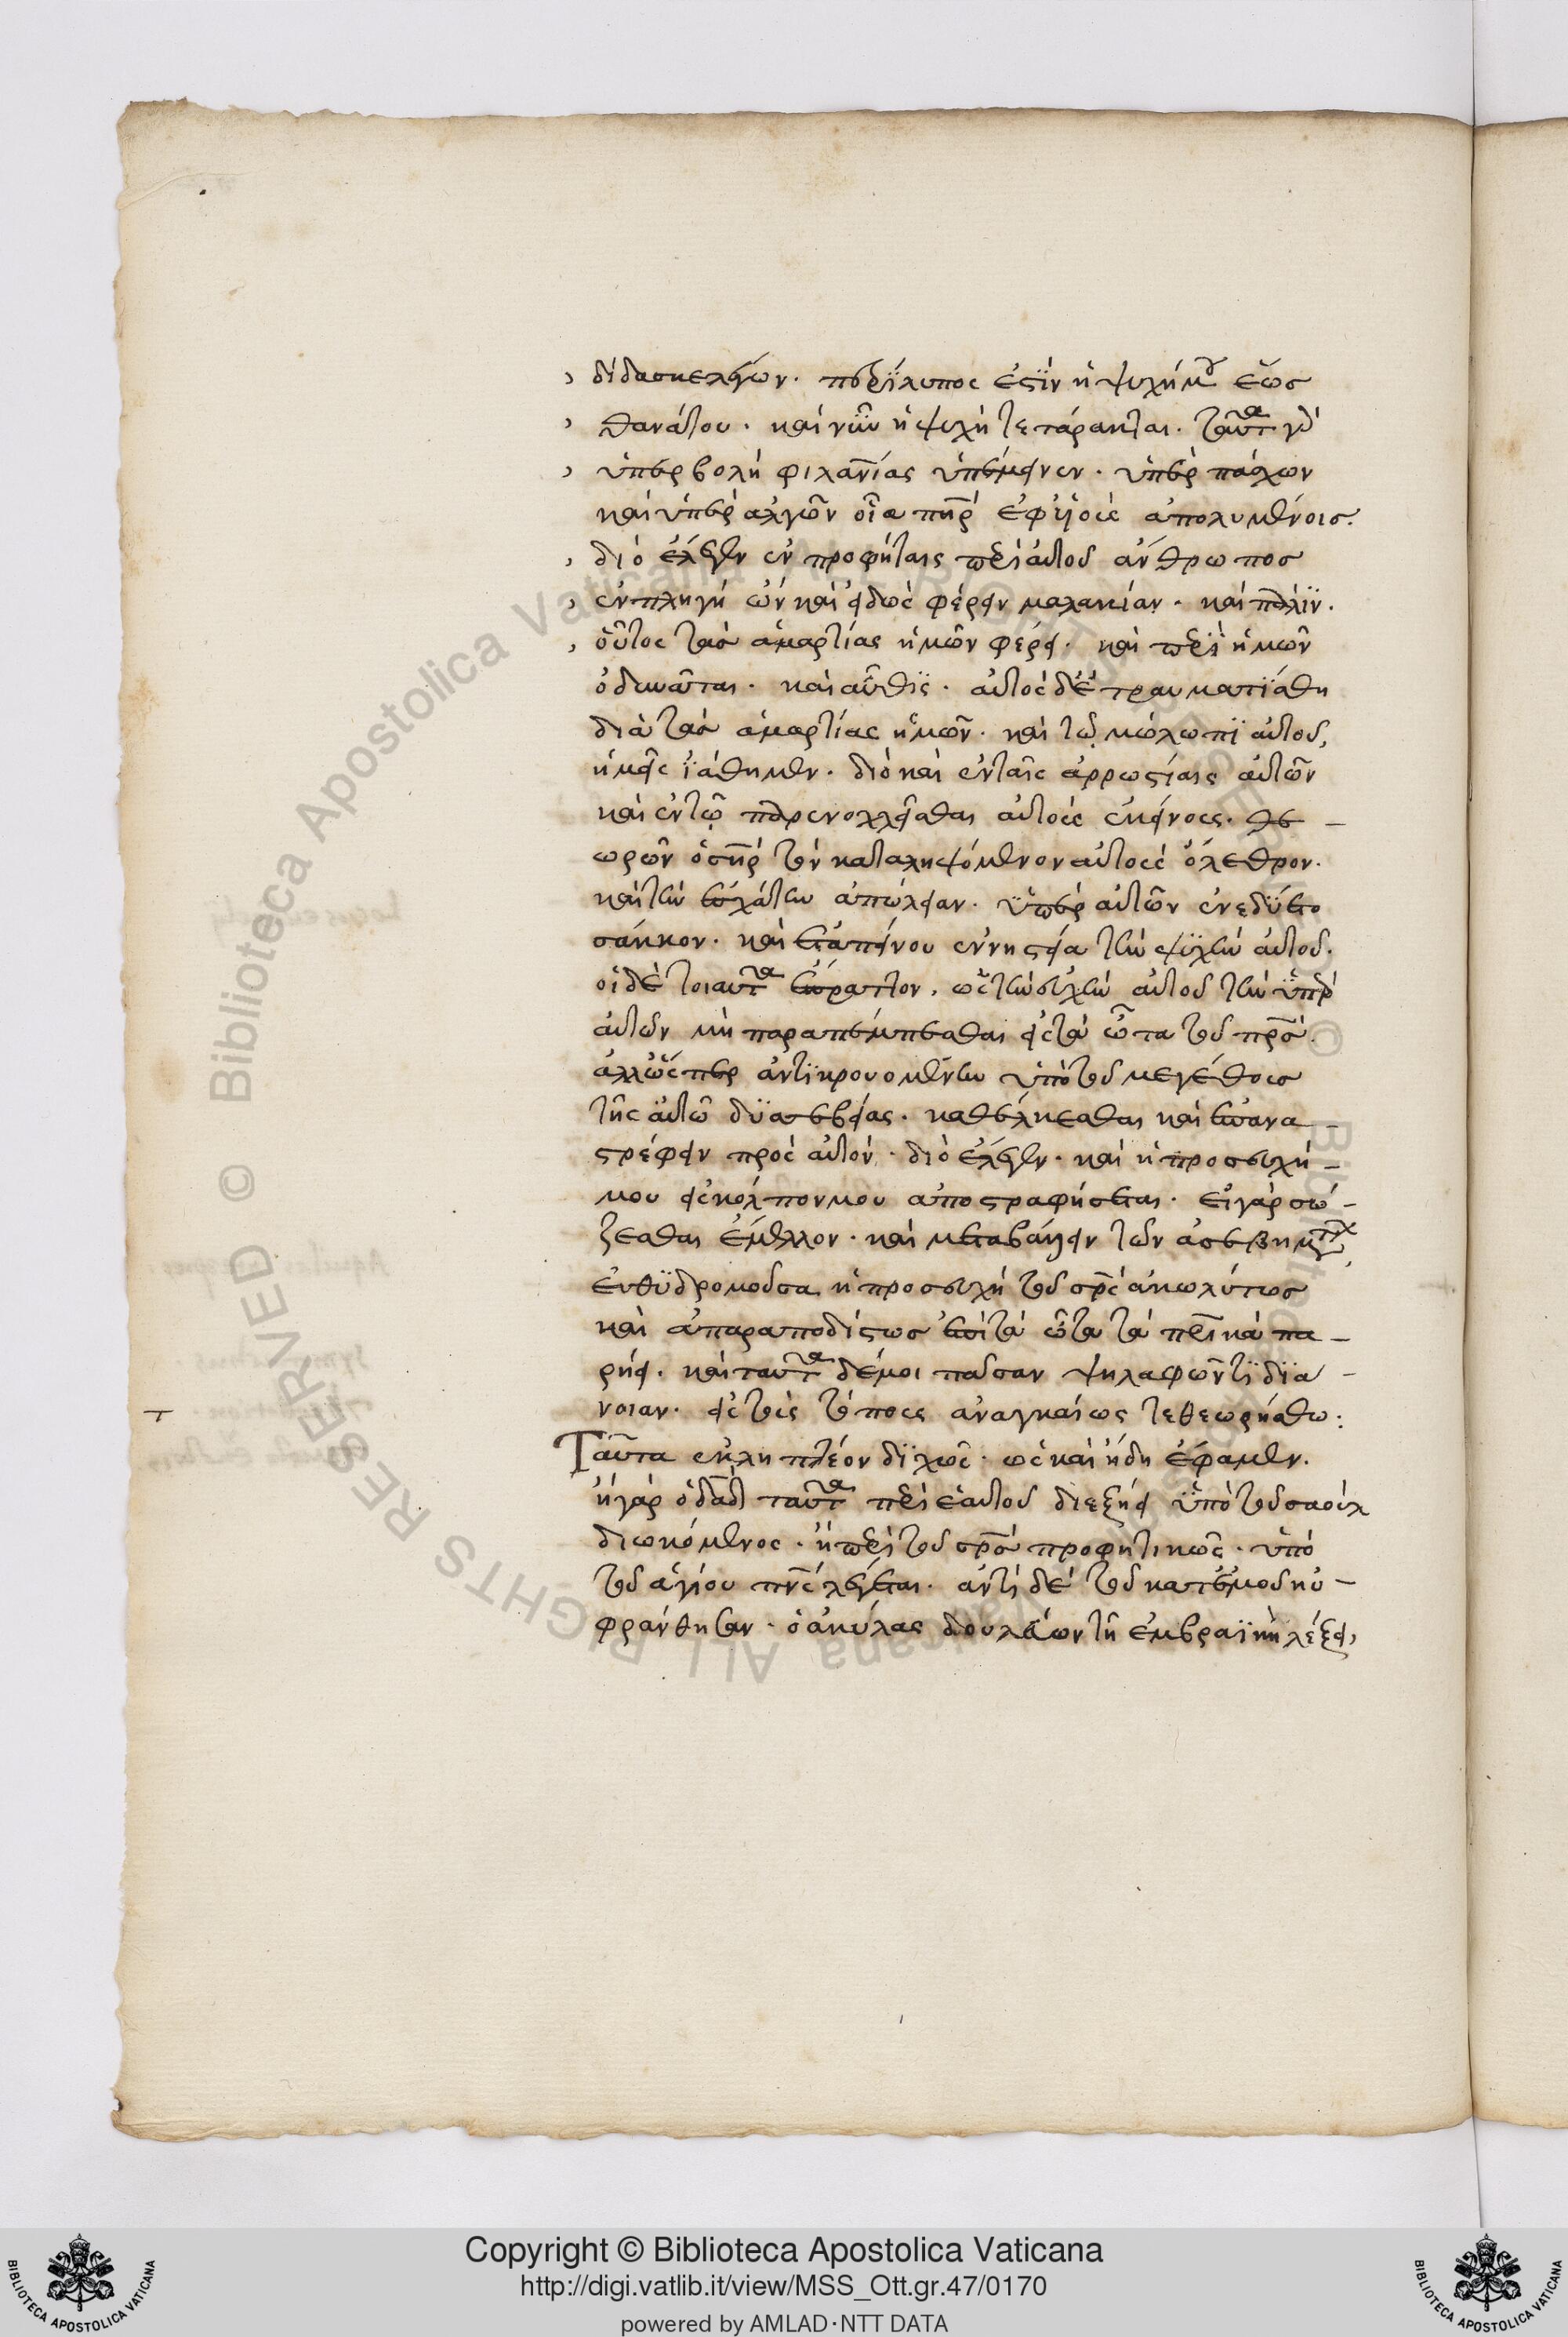 δίδασκε λέγων. περίλυπος ἐστὶν ἡ ψυχή μου ἕως
θανάτου. καὶ νῦν ἡ ψυχὴ τετάρακται. ταῦτα γὰρ
ὑπερβολῇ φιλανίας ὑπέμεινεν. ὑπερπάσχων
καὶ ὑπεραλγῶν οἷα πηρ ἐφ υἱοῖς ἀπολυμένοις.
διὸ ἔλεγεν ἐν προφήταις περὶ αὐτοῦ ἄνθρωπος
ἐν πληγῇ ὢν καὶ εἰδὼς φέρειν μαλακίαν. καὶ πάλιν.
οὗτος τὰς ἁμαρτίας ἡμῶν φέρει. καὶ περὶ ἡμῶν
ὀδυνᾶται. καὶ αὖθις. αὐτὸς δὲ ἐτραυματίσθη
διὰ τὰς ἁμαρτίας ἡμῶν. καὶ τῷ μώλωπι αὐτοῦ,
ἡμεῖς ἰάθημεν. διὸ καὶ ἐν ταῖς ἀρρωστίαις αὐτῶν
καὶ ἐν τῷ παρενοχλεῖσθαι αὐτοὺς ἐκείνους. θε-
ωρῶν ὁ σηρ τὸν καταληψόμενον αὐτοὺς ὄλεθρον.
καὶ τὴν ἐσχάτην ἀπώλειαν. ὑπὲρ αὐτῶν ἐνεδύετο
σάκκον. καὶ ἐταπείνου ἐν νηστείᾳ τὴν ψυχὴν αὐτοῦ.
οἱ δὲ τοιαῦτα ἔπραττον, ὡς τὴν εὐχὴν αὐτοῦ τὴν ὑπὲρ
αὐτῶν μὴ παραπέμπεσθαι εἰς τὰ ὦτα τοῦ πρς.
ἀλλ ὥσπερ ἀντικρουομένην ὑπὸ τοῦ μεγέθους
τῆς αὐτῶν δυσσεβείας. καθέλκεσθαι καὶ ἐπανα-
στρέφειν πρὸς αὐτόν. διὸ ἔλεγεν. καὶ ἡ προσευχή-
μου εἰς κόλπον μου ἀποστραφήσεται. εἰ γὰρ σώ-
ζεσθαι ἔμελλον. καὶ μεταβάλλειν τῶν ἀσεβημάτων,
εὐθυδρομοῦσα ἡ προσευχὴ τοῦ σρς ἀκωλύτως
καὶ ἀπαραποδίστως ἐπὶ τὰ ὦτα τὰ πρικὰ πα-
ρῄει. καὶ ταῦτα δέ μοι πᾶσαν ψηλαφῶντι διά-
νοιαν. εἰς τοὺς τόπους ἀναγκαίως τεθεωρήσθω:
Ταῦτα ἐκληπτέον διχῶς. ὡς καὶ ἤδη ἔφαμεν.
ἢ γὰρ ὁ δαδ ταῦτα περὶ ἑαυτοῦ διεξῄει ὑπὸ τοῦ σαοὺλ
διωκόμενος. ἢ περὶ τοῦ σρς προφητικῶς. ὑπὸ
τοῦ ἁγίου πνς λέγεται. ἀντὶ δὲ τοῦ κατ ἐμοῦ ηὐ-
φράνθησαν. ὁ ἀκύλας δουλεύων τῇ ἑμβραϊκῇ λέξει,
Copyright © Biblioteca Apostolica Vaticana
http://digi.vatlib.it/view/MSS_Ott.gr.47/0170
powered by AMLAD·NTT DATA